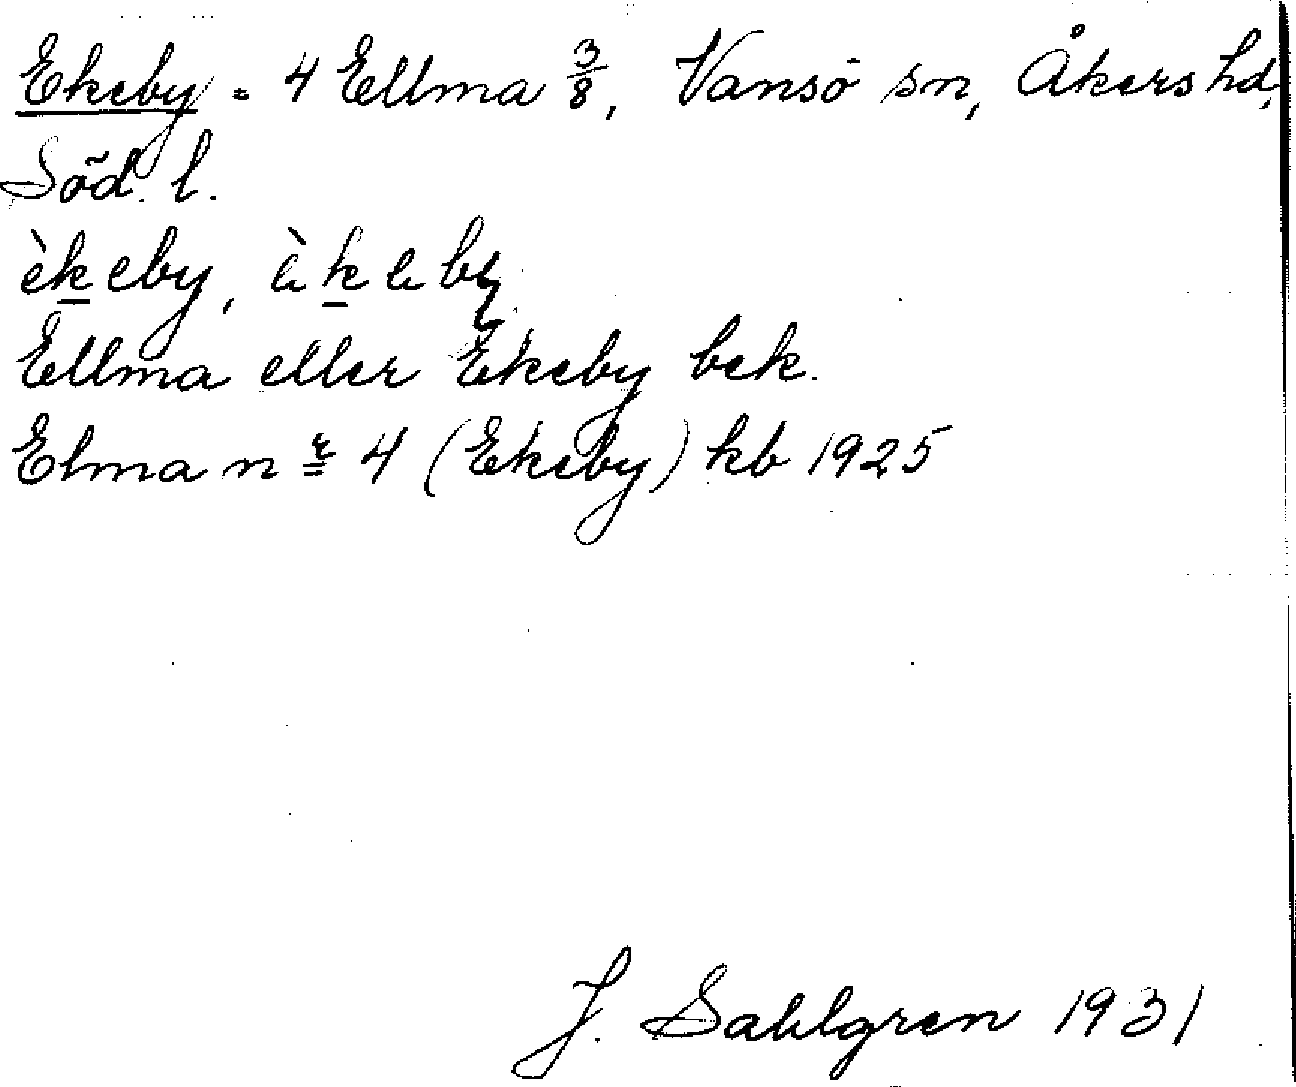 Ekeby = 4 Ellma 3/8, Vansö sn, Åkers hd,
Söd. l.
èkeby, 
Ellma eller Ekeby bek.
Elma nr 4 (Ekeby) kb 1925
J. Sahlgren 1931